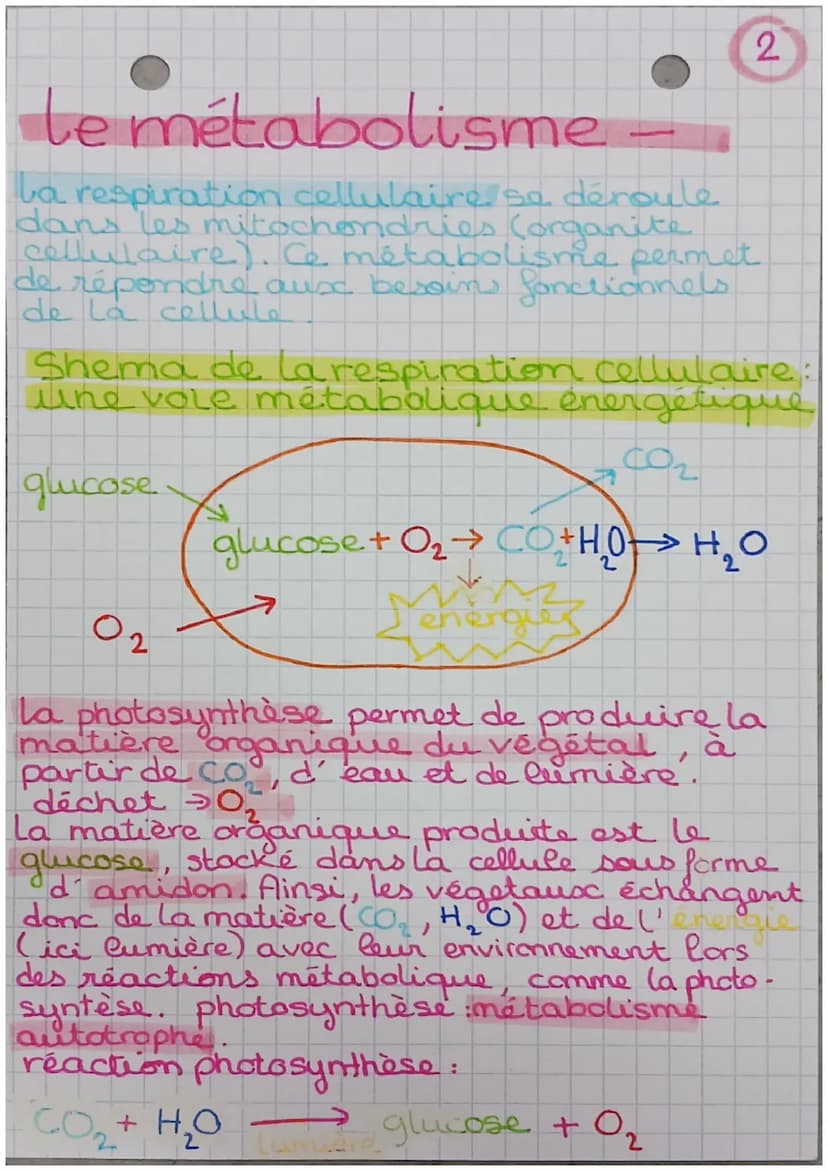 2
Le métabolisme -
La respiration cellulaire se déroule
dans les mitochondries (organite
cellulaire). Ce métabolisme permet
de répondre aux besoins fonctionnels
de la cellule.
Shema de la respiration cellulaire :
une voie métabolique énergétique
CO₂
glucose
glucose + O₂ → CO₂ + H₂O → H₂O
énergies
O₂
La photosynthèse permet de produire la
matière organique du végétal, à
partir de CO₂, d'eau et de lumière.
déchet → O₂
La matière organique produite est le
glucose, stocké dans la cellule sous forme
d'amidon. Ainsi, les végetaux échangent
donc de la matière (CO₂, H₂O) et de l'énergie
(ici lumière) avec leur environnement lors
des réactions métabolique, comme la photo-
syntèse. photosynthèse : métabolisme
autotrophe.
réaction photosynthèse :
CO₂ + H₂O → glucose + O₂
lumière